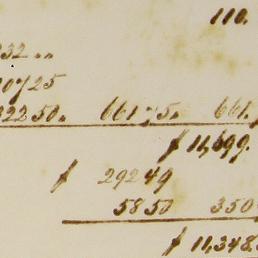 110.
232 „
10725
32250. 66175. 661.
$ 11,699.
$ 29249
5850 350
$ 11,348.